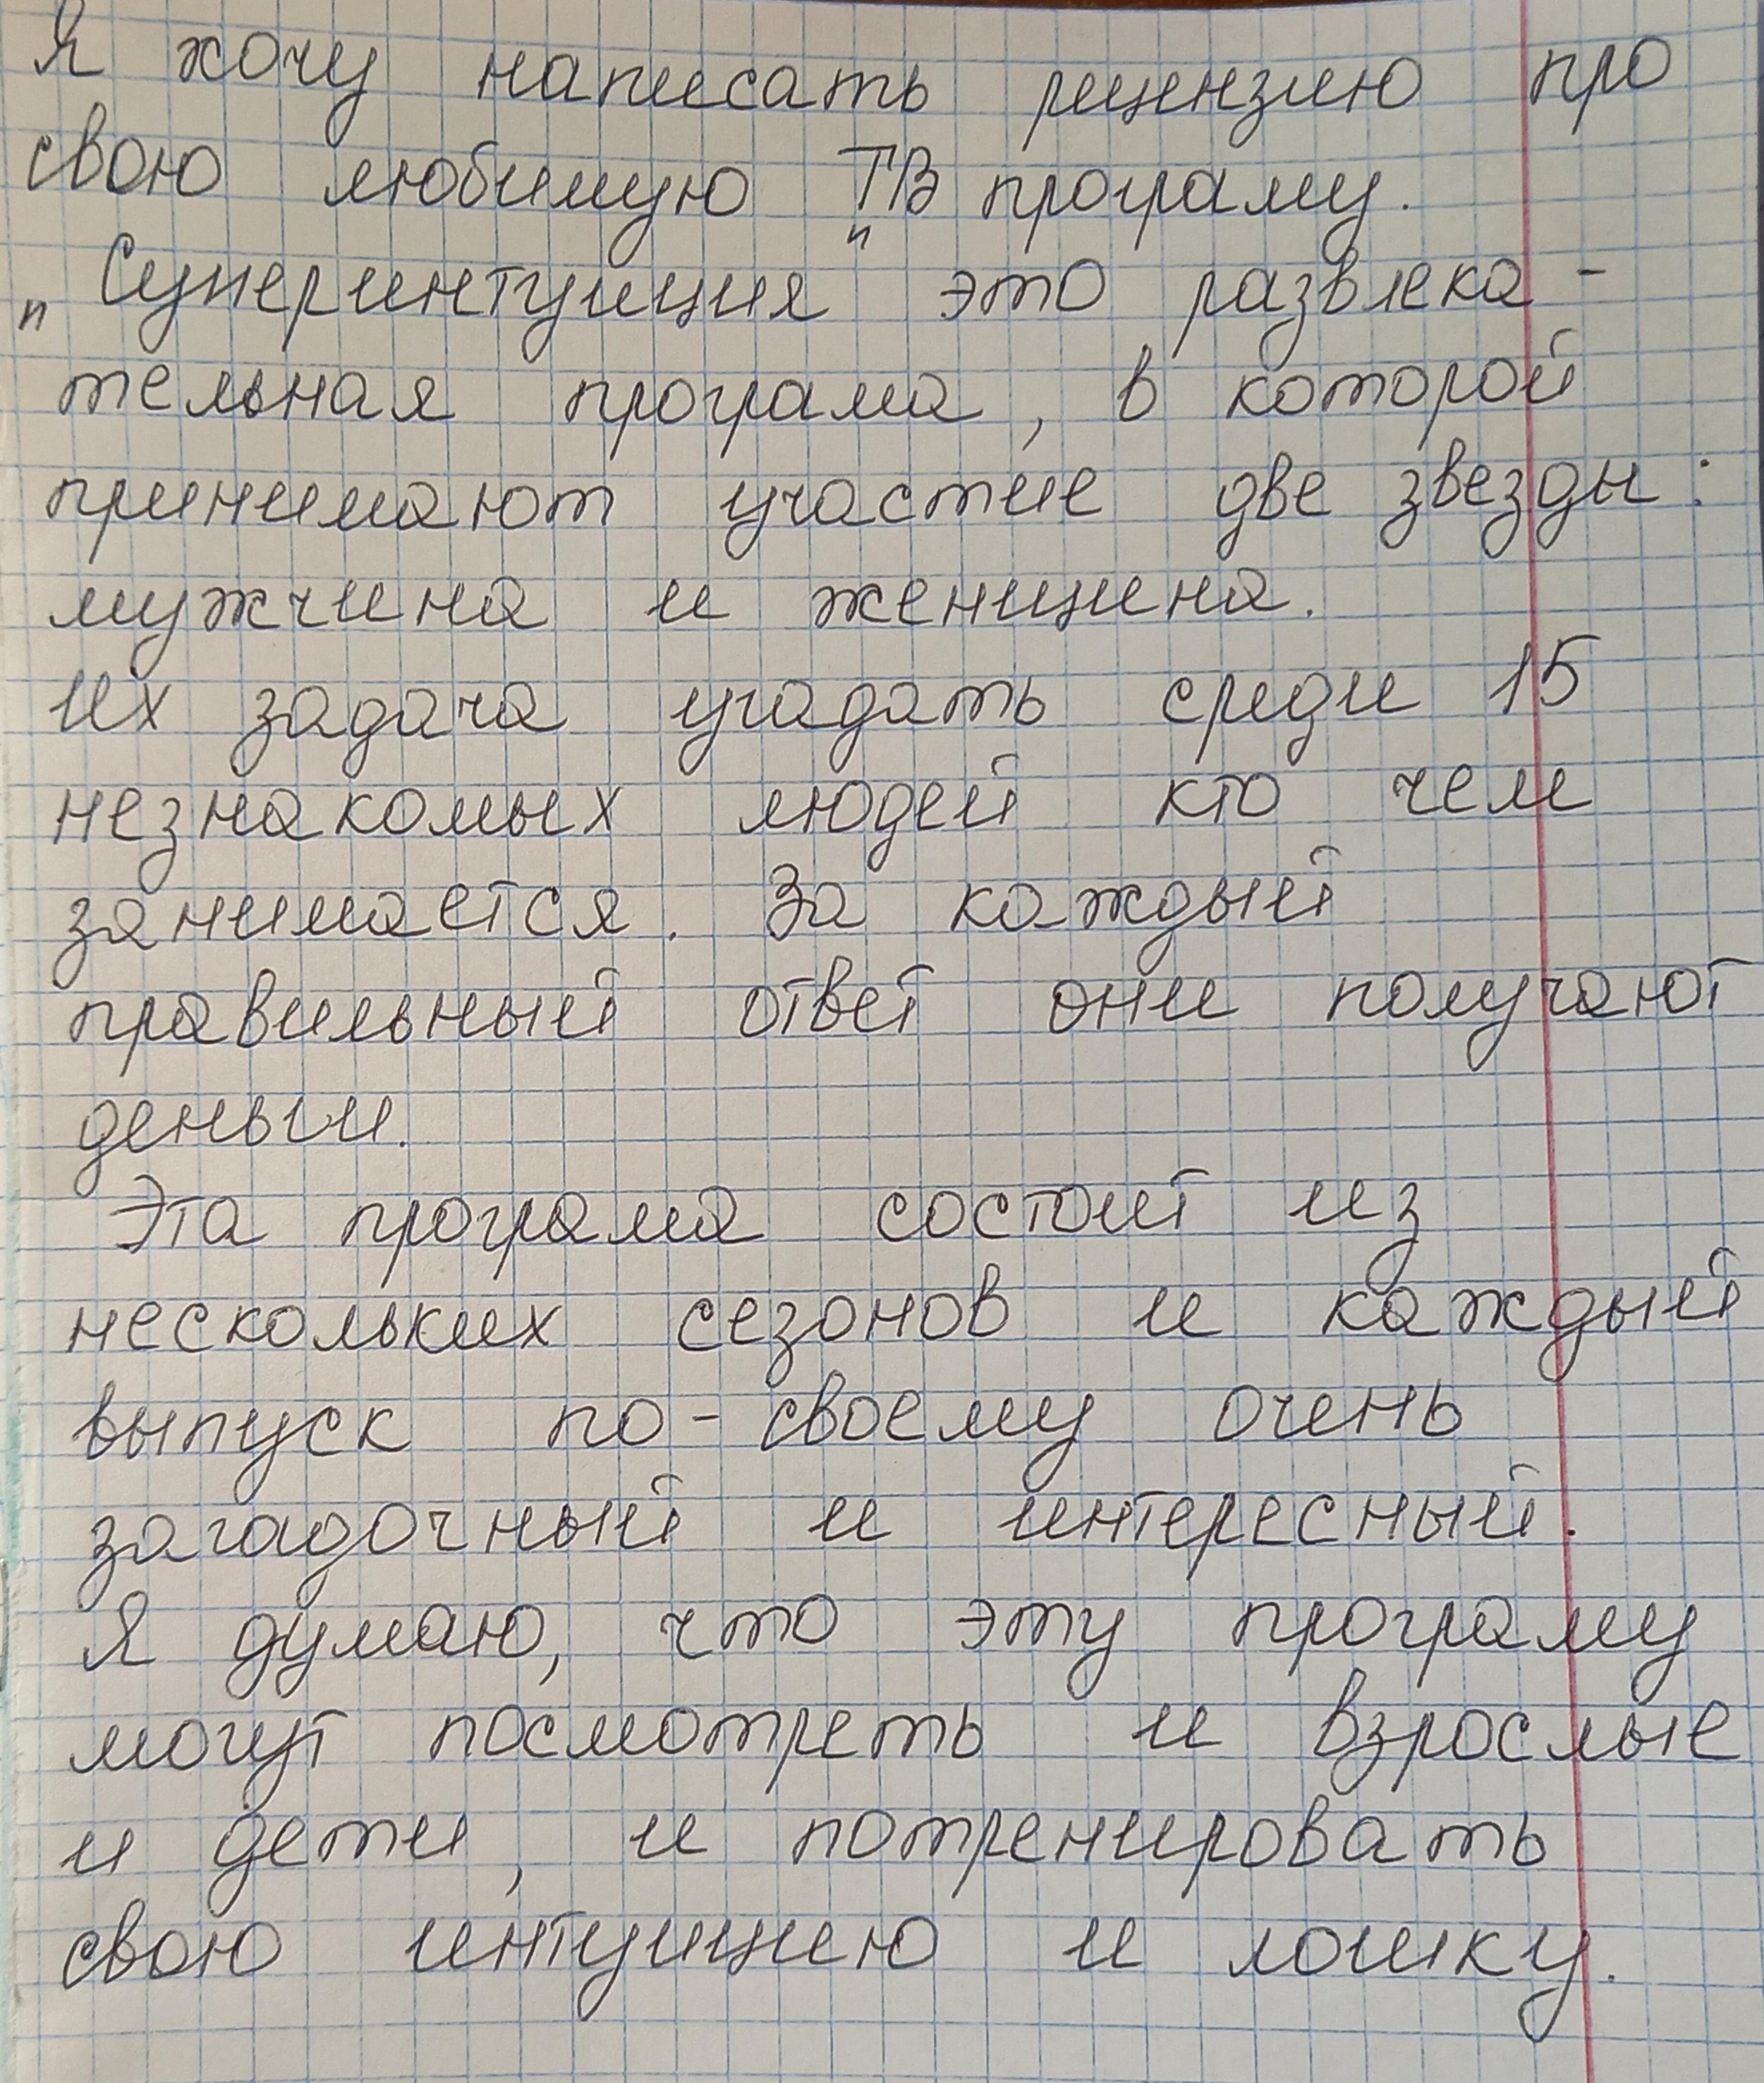 Я хочу написать рецензию про
свою любимую ТВ програму.
„Суперинтуиция" это развлека-
тельная програма, в которой
принимают участие две звезды:
мужчина и женщина.
Их задача угадать среди 15
незнакомых людей кто чем
занимается. За каждый
правильный ответ они получают
деньги.
Эта програма состоит из
нескольких сезонов и каждый
выпуск по-своему очень
загадочный и интересный.
Я думаю, что эту програму
могут посмотреть и взрослые
и дети, и потренировать
свою интуицию и логику.